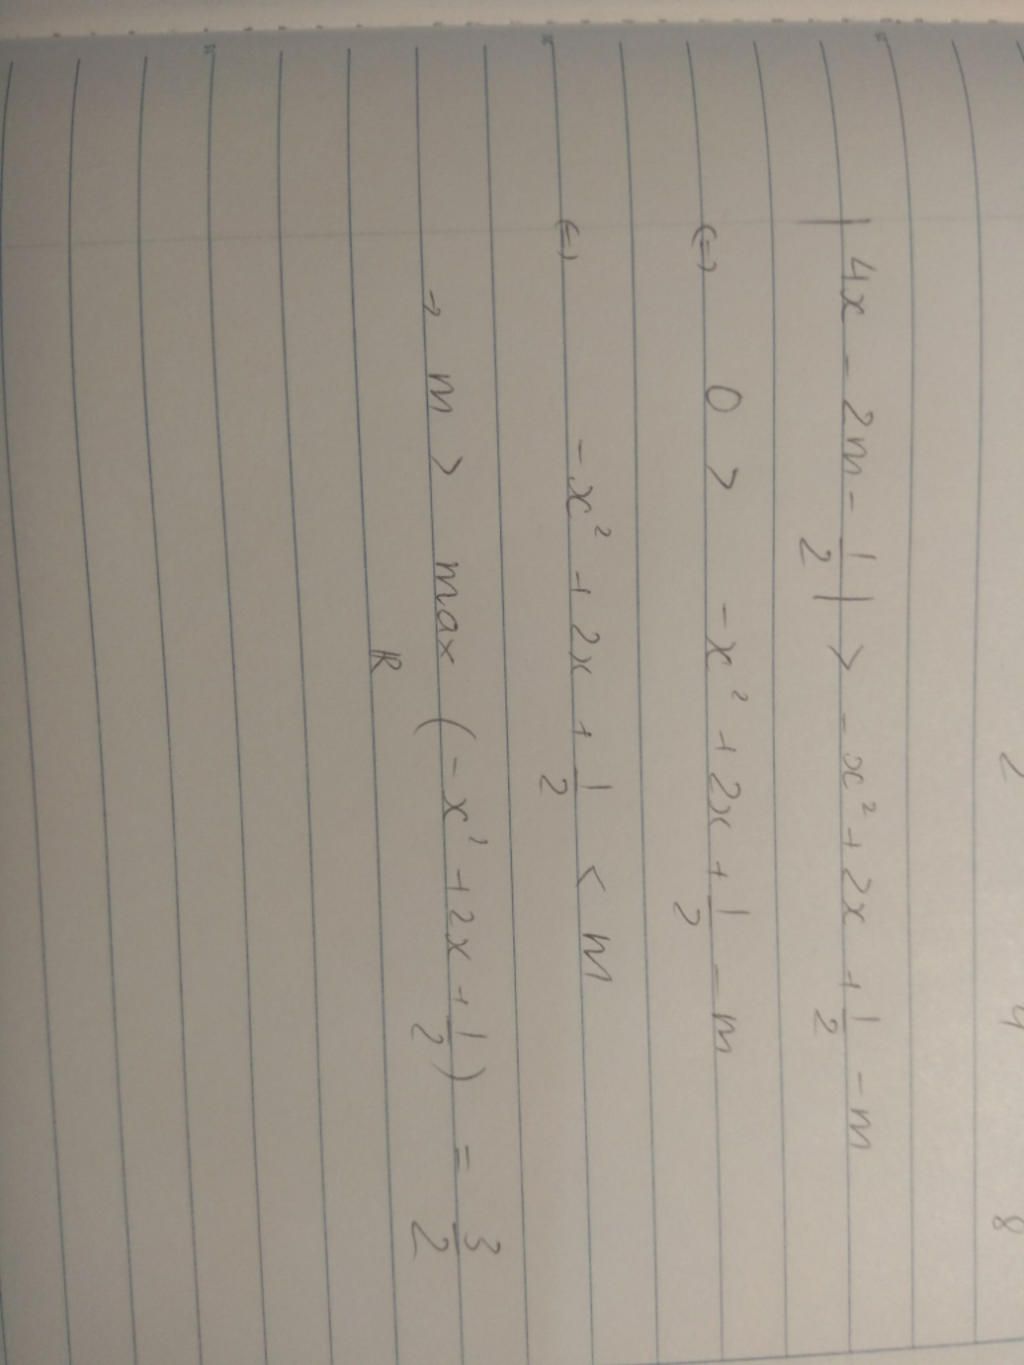 2 4 8
|4x - 2m - 1/2| > -x² + 2x + 1/2 - m
(=) 0 > -x² + 2x + 1/2 - m
(=) -x² + 2x + 1/2 < m
→ m > max (-x² + 2x + 1/2) = 3/2
ℝ